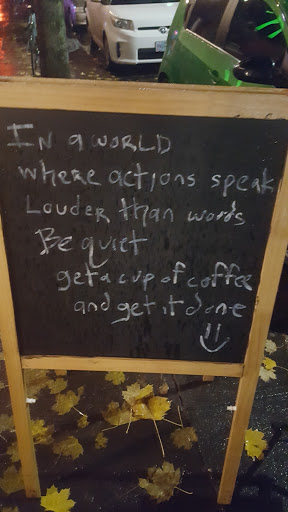 IN a WORLD
where actions speak
Louder than words
Be quiet
get a cup of coffee
and get it done